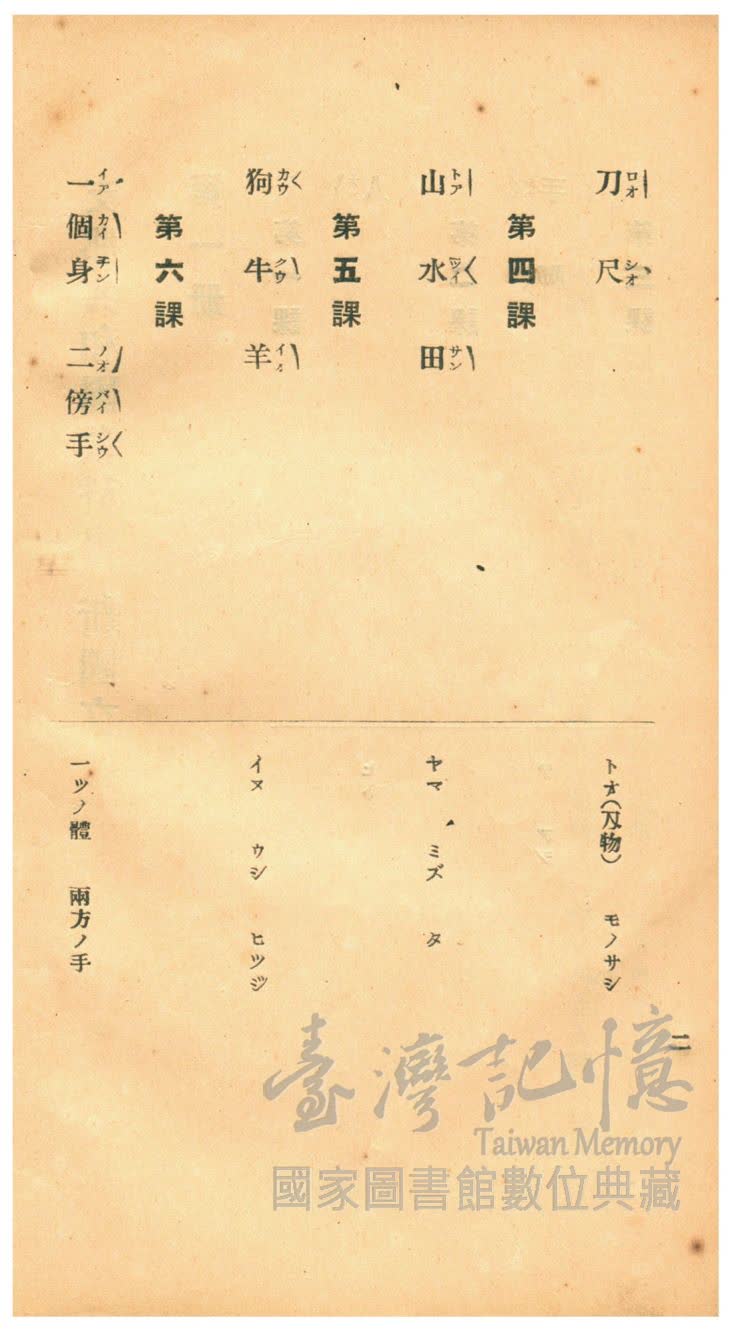 刀ロオ 尺シオ
トオ(刄物) モノサシ
第四課
山トア 水ツイ 田サン
ヤマ ミズ タ
第五課
狗カウ 牛クウ 羊イィ
イヌ ウシ ヒツジ
第六課
一イア 個カイ 身チン 二ノオ 傍バイ 手シウ
一ツノ體 兩方ノ手
二
臺灣記憶
Taiwan Memory
國家圖書館數位典藏